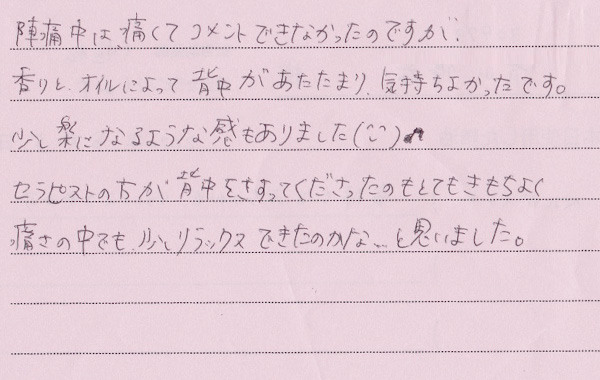 陣痛中は、痛くてコメントできなかったのですが、
香りと、オイルによって背中があたたまり、気持ちよかったです。
少し楽になるような感もありました(^^)
セラピストの方が背中をさすってくださったのもとてもきもちよく
痛さの中でも、少しリラックスできたのかな…と思いました。